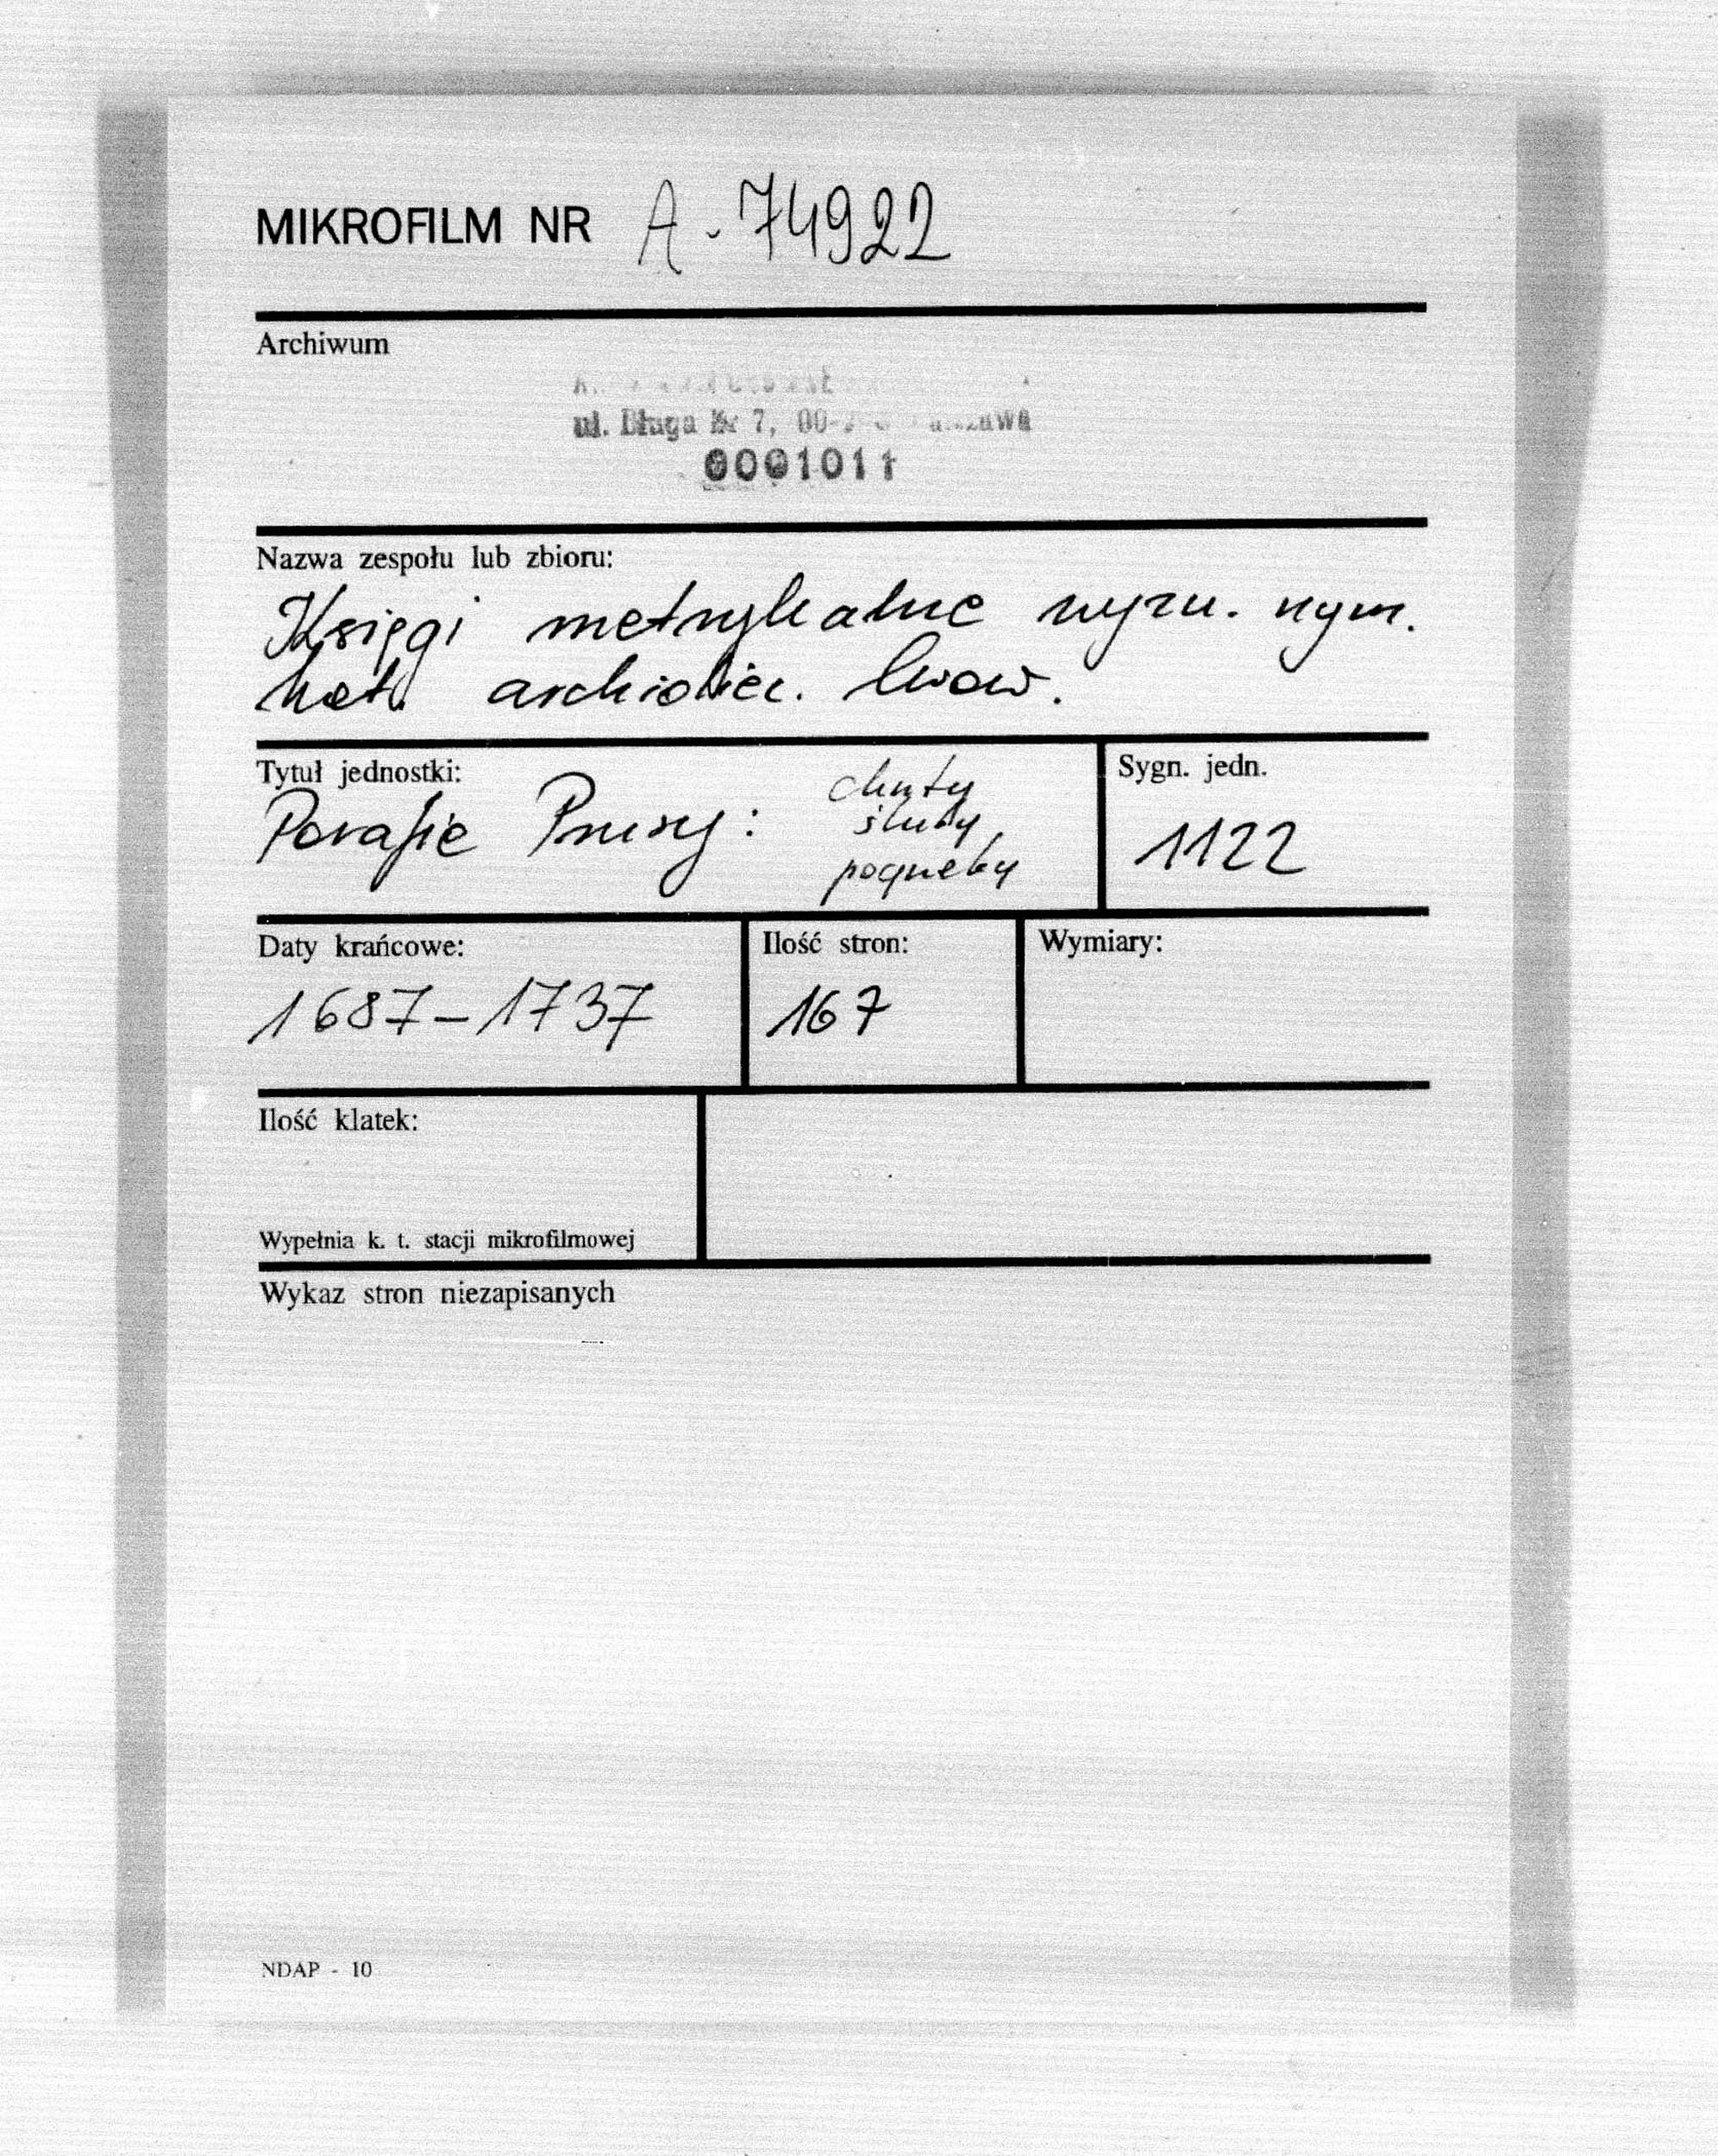 MIKROFILM NR A-74922
Archiwum
ul. Długa Nr 7, 00-
0001011
Nazwa zespołu lub zbioru:
Księgi metrykalne wyzn. rzym.
kat. archidiec. lwow.
Tytuł jednostki:
Parafie Prusy:
chrzty
śluby
pogrzeby
Sygn. jedn.
1122
Daty krańcowe:
1687-1737
Ilość stron:
167
Wymiary:
Ilość klatek:
Wypełnia k. t. stacji mikrofilmowej
Wykaz stron niezapisanych
NDAP - 10